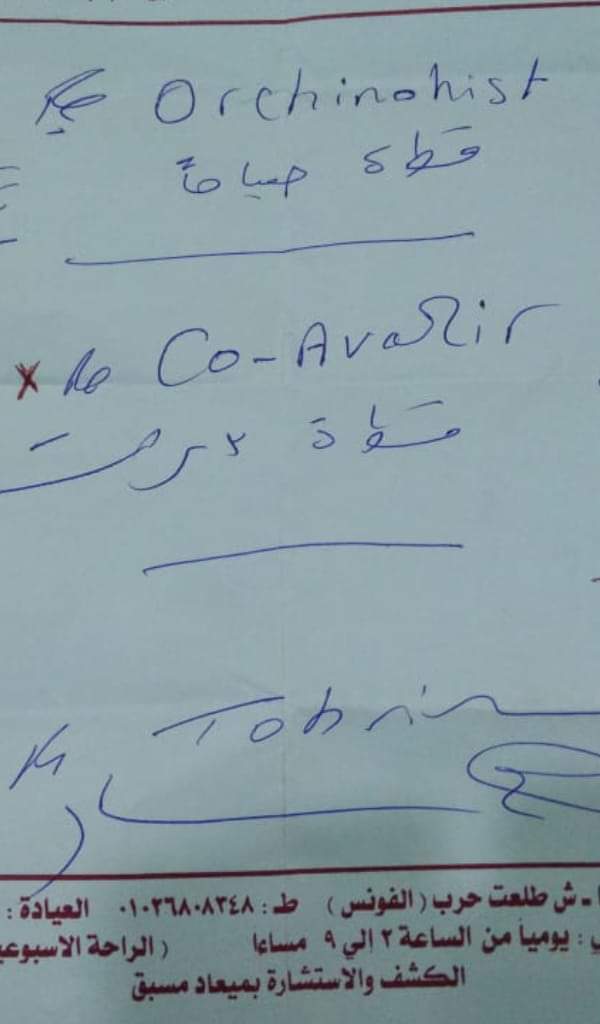 Orchinohist
قطة صباحاً
Co-Avazir
قطرة ٢ مرات
Tobrin
ـ ش طلعت حرب (الفونس) ط : ٠١٠٢٦٨٠٨٣٤٨ العيادة :
: يومياً من الساعة ٢ إلى ٩ مساءا (الراحة الاسبوعي
الكشف والاستشارة بميعاد مسبق